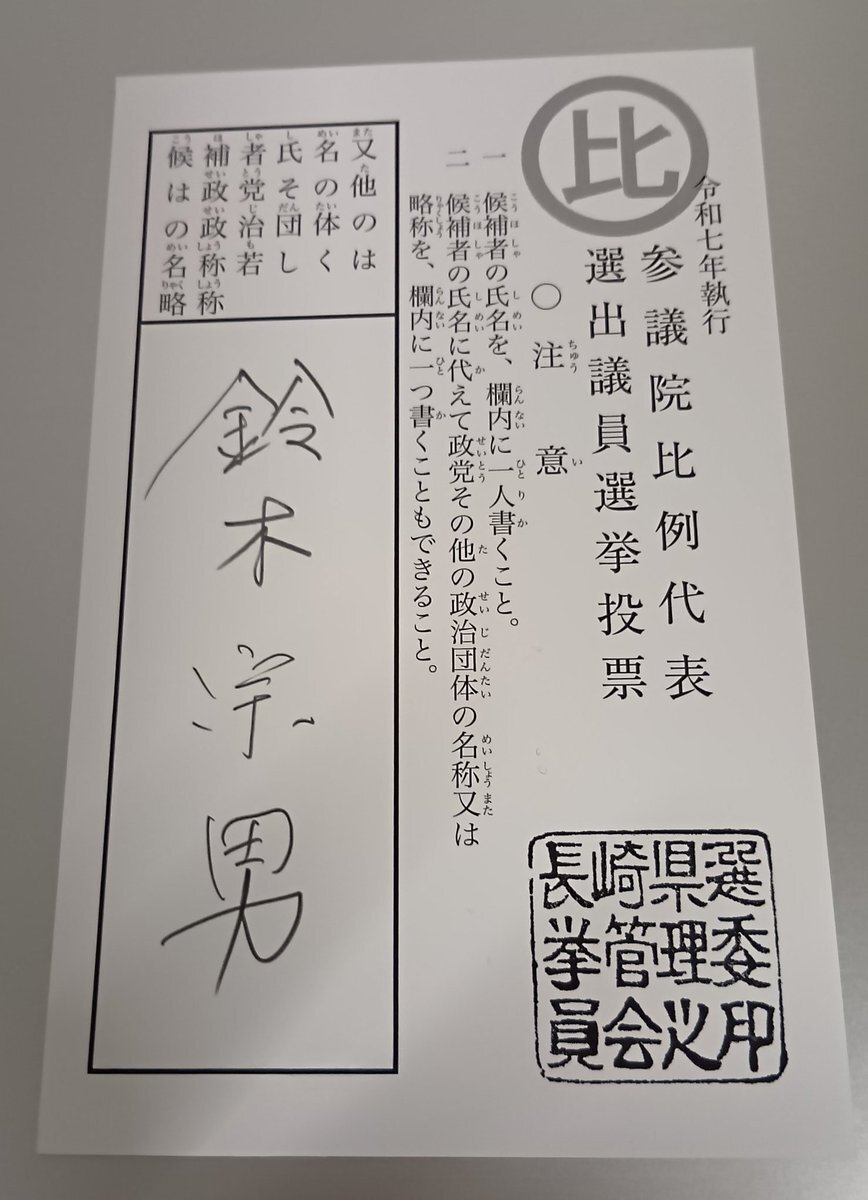 比
令和七年執行
参議院比例代表
選出議員選挙投票
○注意
一 候補者の氏名を、欄内に一人書くこと。
二 候補者の氏名に代えて政党その他の政治団体の名称又は
略称を、欄内に一つ書くこともできること。
候補者氏名又
は政党その他
の政治団体の
名称若しくは
略称
鈴木宗男
長崎県選
挙管理委
員会之印